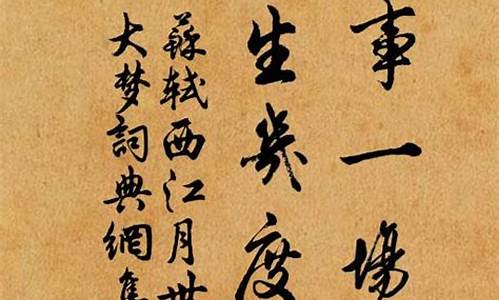 事一場
生幾度
蘇軾西江月世
大梦詞典網隻